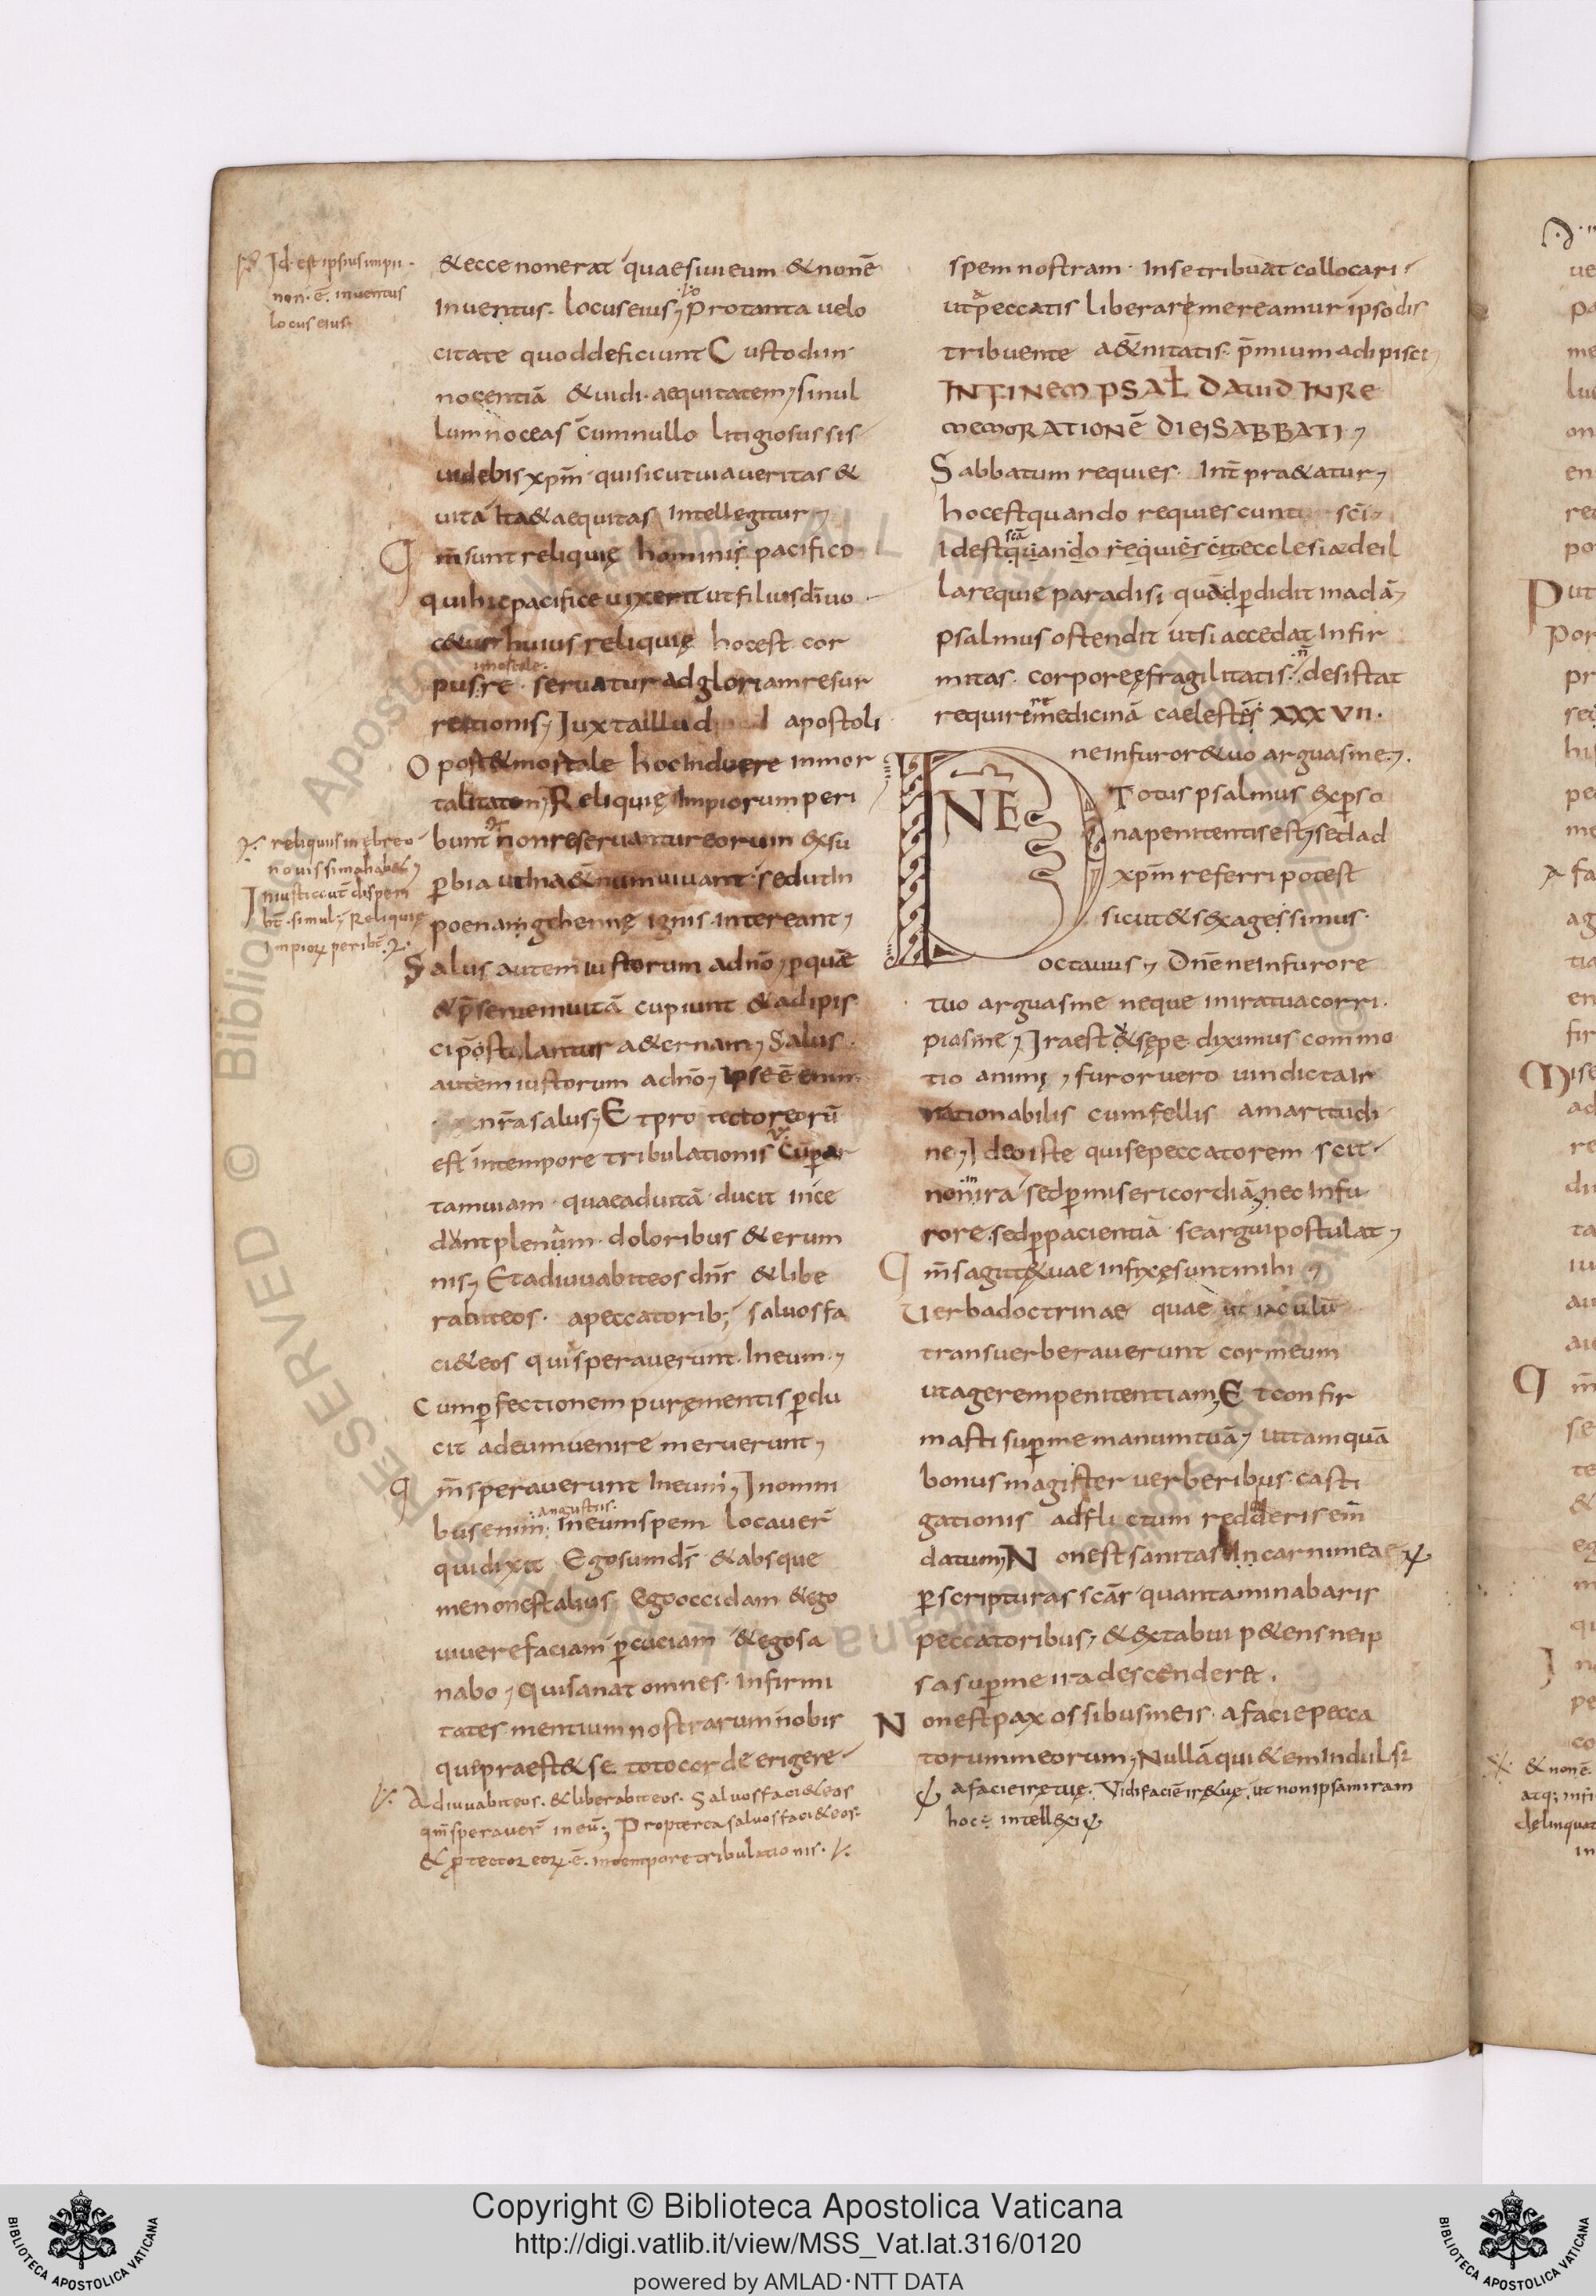 Id est ipsius impii.
non. ē. inventus
locus eius;
& ecce non erat quaesivi eum & non ē
inventus. locus eius; Pro tanta velo
citate quod deficiunt Custodi in
nocentiā & vidi. aequitatem; si nul
lum noceas cum nullo litigiosus sis
videbis xpm̄ qui sicut via veritas &
vita Ita & aequitas intellegitur;
Qm̄ sunt reliquię hominis pacifico
qui hic pacifice vixerit ut filius dī vo
c&ur huius reliquię hoc est cor
pus re servatur ad gloriam resur
rectionis; Juxta illud apostoli
Oport& mortale hoc induere inmor
talitatem; Reliquię impiorum peri
bunt non reservantur eorum ex su
p̄bia ut in a&num vivant sed ut in
poenam gehennę ignis intereant;
reliquiis in ebreo
novissima hab&;
Iniusti aut̄ disperi
bt̄. simul; Reliquię
impiorꝝ peribt̄.
Salus autem iustorum a dnō; p quē
& p̄sentem vitā cupiunt & adipis
ci postulantur a&ernam; Salus
autem iustorum a dnō; Ipse ē enim
nr̄a salus; Et protector eorū
est in tempore tribulationis Cū p ar
tam viam. quae ad vitā ducit ince
dant plenam. doloribus & erum
nis; Et adiuvabit eos dn̄s & libe
rabit eos. a peccatorib; salvos fa
ci& eos qui speraverunt. In eum;
Cum pfectionem purę mentis pdu
cit ad eum venire meruerunt;
Qm̄ speraverunt in eum; In omni
bus enim angustiis. In eum spem locaver̄
qui dixit Ego sum ds̄ & absque
me non est alius; Ego occidam & ego
vivere faciam pcuciam & ego sa
nabo; qui sanat omnes. infirmi
tates mentium nostrarum nobis
que praest& se toto corde erigere
Adiuvabit eos. & liberabit eos. Salvos faci& eos
qm̄ speraver̄ in eū; Propterea salvos faci& eos
& ptector eorꝝ. ē. in tempore tribulationis.
spem nostram. In se tribuat collocari
ut a peccatis liberari mereamur ipso dis
tribuente a&nitatis p̄mium adipisci;
IN FINEM PSAL DAVID IN RE
MEMORATIONĒ DIEI SABBATI;
Sabbatum requies. Int̄pra&atur;
hoc est quando requiescunt sc̄i
Id est quando requiescit ecclesia de il
la requie paradisi quā pdidit in adā;
psalmus ostendit ut si accedat infir
mitas. corporeę fragilitatis. n̄ desistat
requirere medicinā caelestē XXXVII.
DNE ne in furore tuo arguas me;
Totus psalmus ex pso
na penitentis est; sed ad
xpm̄ referri potest
sicut & sexagessimus
octavus; Dnē ne in furore
tuo arguas me neque in ira tua corri
pias me; Ira est & sępe diximus commo
tio animi; furor vero vindicta Ir
rationabilis cum fellis amaritudi
ne; Ideo iste qui se peccatorem scit
non in ira sed p misericordiā; nec in fu
rore. sed p pacientiā se argui postulat;
Qm̄ sagittę tuae infixę sunt mihi;
Verba doctrinae quae ut iaculū
transverberaverunt cor meum
ut agerem penitentiam; Et confir
masti sup me manum tuā; ut tamquā
bonus magister verberibus casti
gationis adflictum redderis em̄
datum; Non est sanitas in carni mea
p scripturas scās quanta minabaris
peccatoribus; & extabui p&ens ne ip
sa sup me ira descender&.
Non est pax ossibus meis. a facie pecca
torum meorum; Nullā qui&em indulsi
a facie irę tuę. Vidi faciē irę tuę. ut non ipsam iram
hoc intellexi
Copyright © Biblioteca Apostolica Vaticana
http://digi.vatlib.it/view/MSS_Vat.lat.316/0120
powered by AMLAD·NTT DATA
BIBLIOTECA APOSTOLICA VATICANA
BIBLIOTECA APOSTOLICA VATICANA